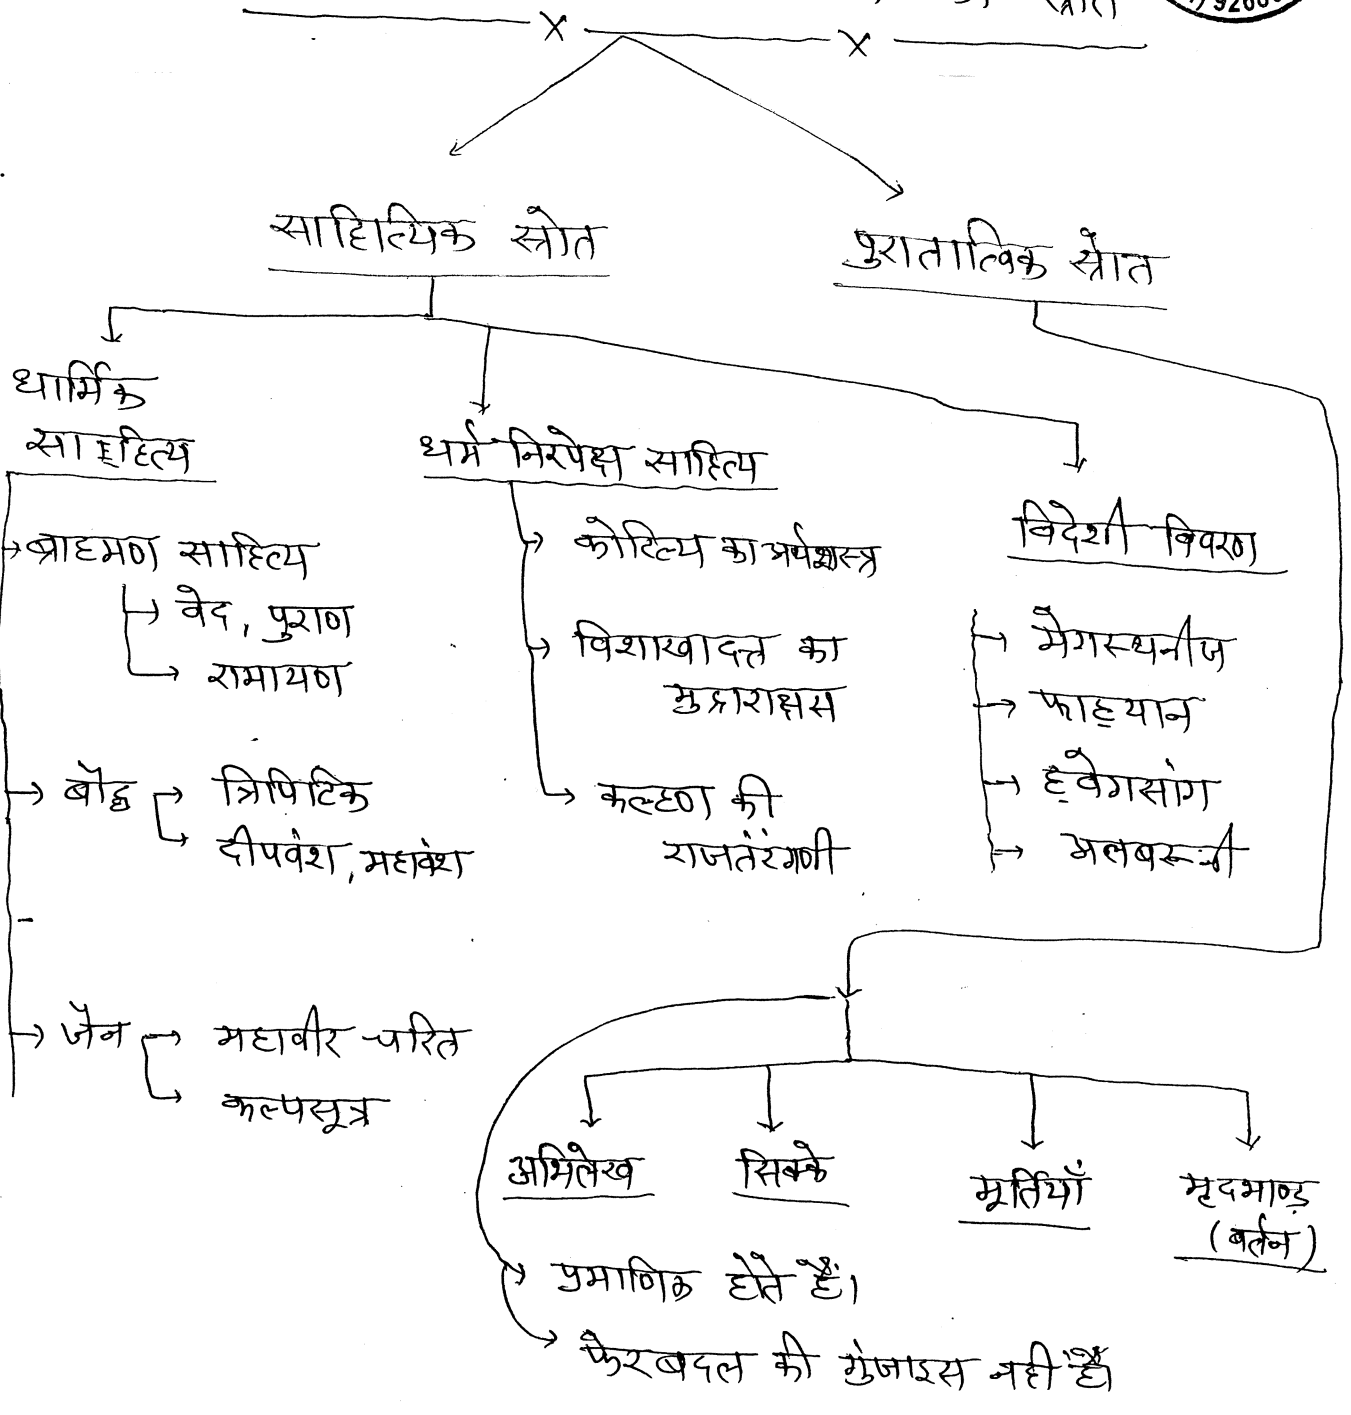 स्रोत
साहित्यिक स्त्रोत
पुरातात्विक स्त्रोत
धार्मिक
साहित्य
ब्राहमण साहित्य
वेद, पुराण
रामायण
बौद्ध
त्रिपिटिक
दीपवंश, महावंश
जैन
महावीर चरित
कल्पसूत्र
धर्म निरपेक्ष साहित्य
कोटिल्य का अर्थशास्त्र
विशाखादत्त का
मुद्राराक्षस
कल्हण की
राजतंरंगणी
विदेशी विवरण
मेगस्थनीज
फाह्यान
ह्वेगसांग
अलबरूनी
अभिलेख
सिक्के
मूर्तियाँ
मृदभाण्ड़
(बर्तन)
प्रमाणिक होते हैं।
फेरबदल की गुंजाइस नहीं है।